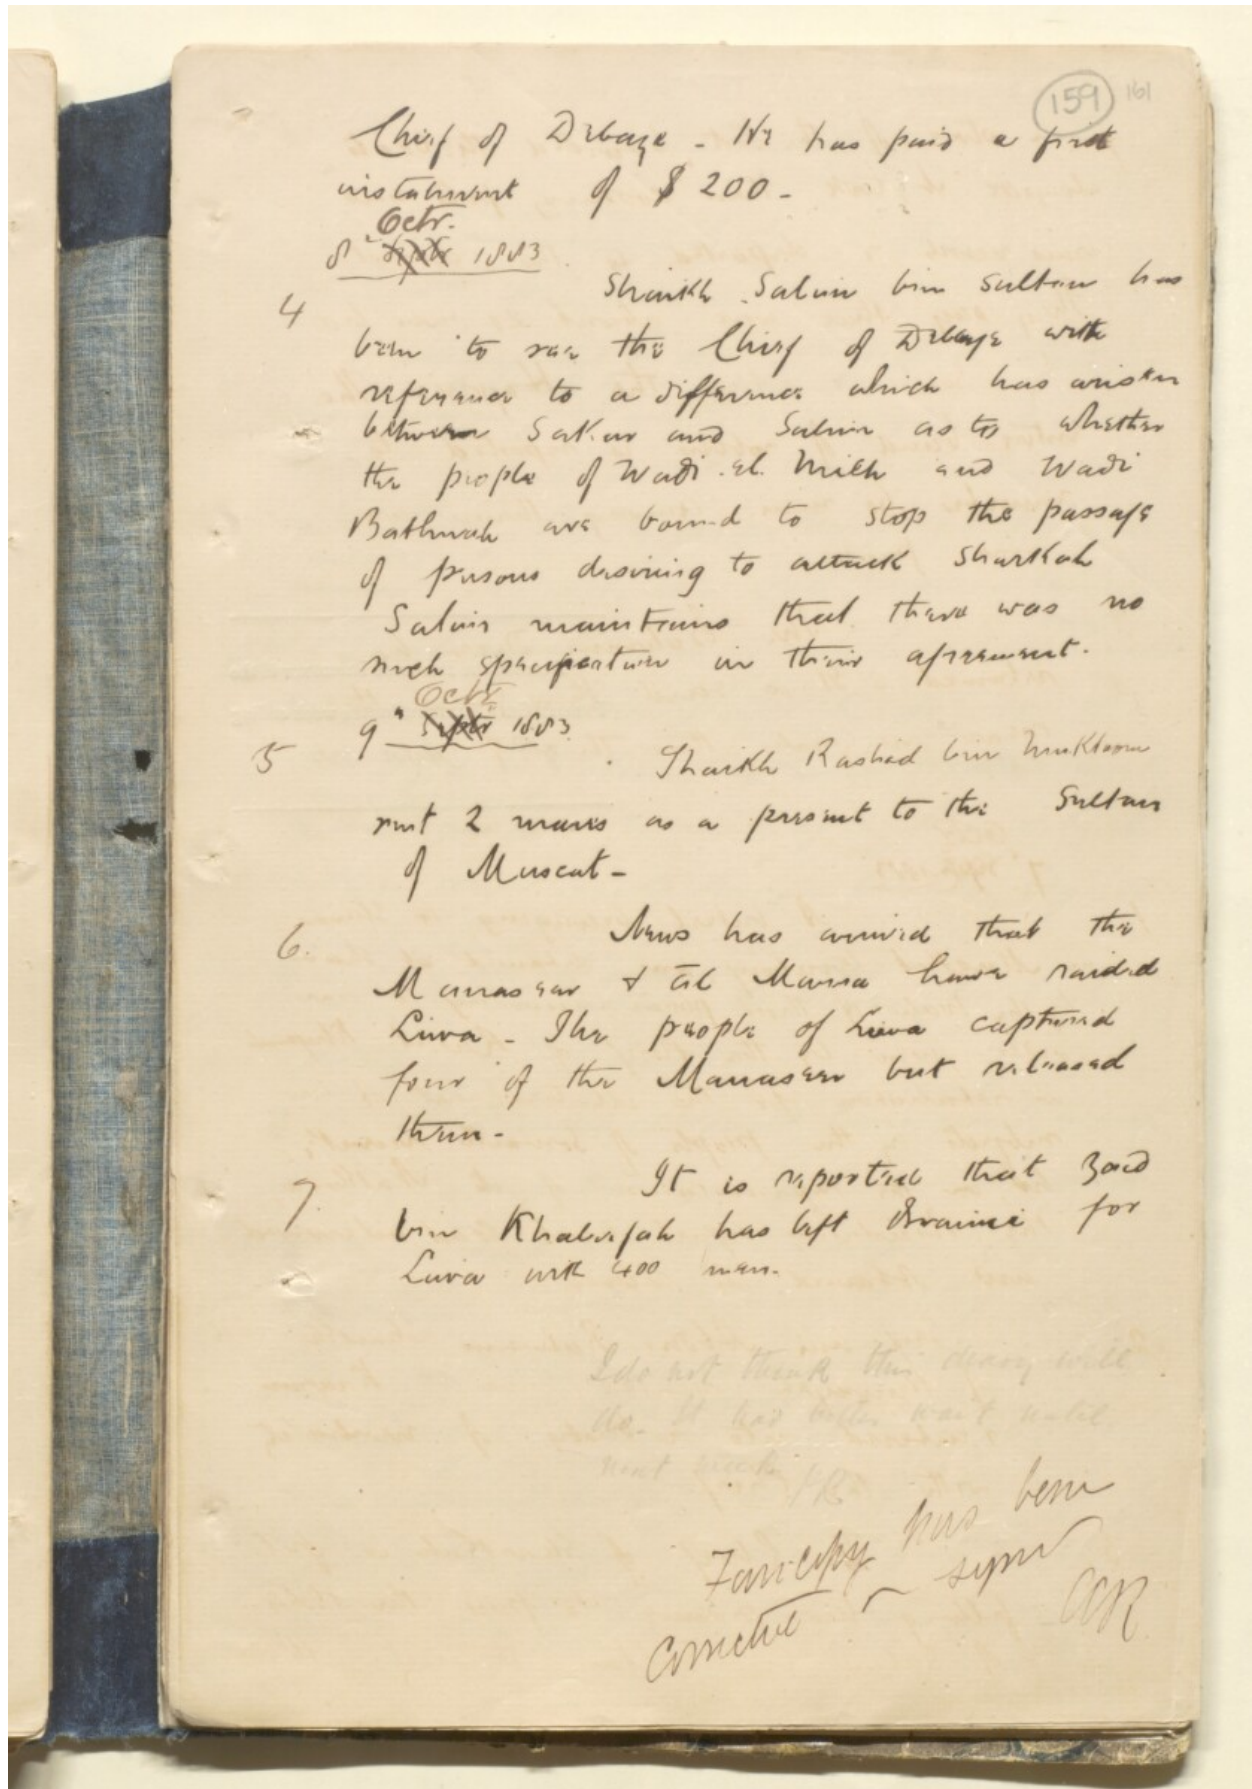 159 161
Chief of Debaye - He has paid a first
instalment of $ 200 -
Octr.
8" Septr 1883
4 Shaikh Salim bin Sultan has
been to see the Chief of Debaye with
reference to a difference which has arisen
between Sakar and Salim as to whether
the people of Wadi el Milh and Wadi
are bound to stop the passage
of persons desiring to attack Sharkah
Salim maintains that there was no
such specification in their agreement.
Octr
9" Septr 1883
5 Shaikh Rashid bin Muktoom
sent 2 mares as a present to the Sultan
of Muscat -
6. News has arrived that the
Manaseer & al have raided
Liwa - The people of Liwa captured
four of the Manaseer but released
them -
7. It is reported that Zaid
bin Khaleefah has left Braimi for
Liwa with 400 men.
I do not think this diary will
do. It had better wait until
next
Fair copy has been
corrected signed